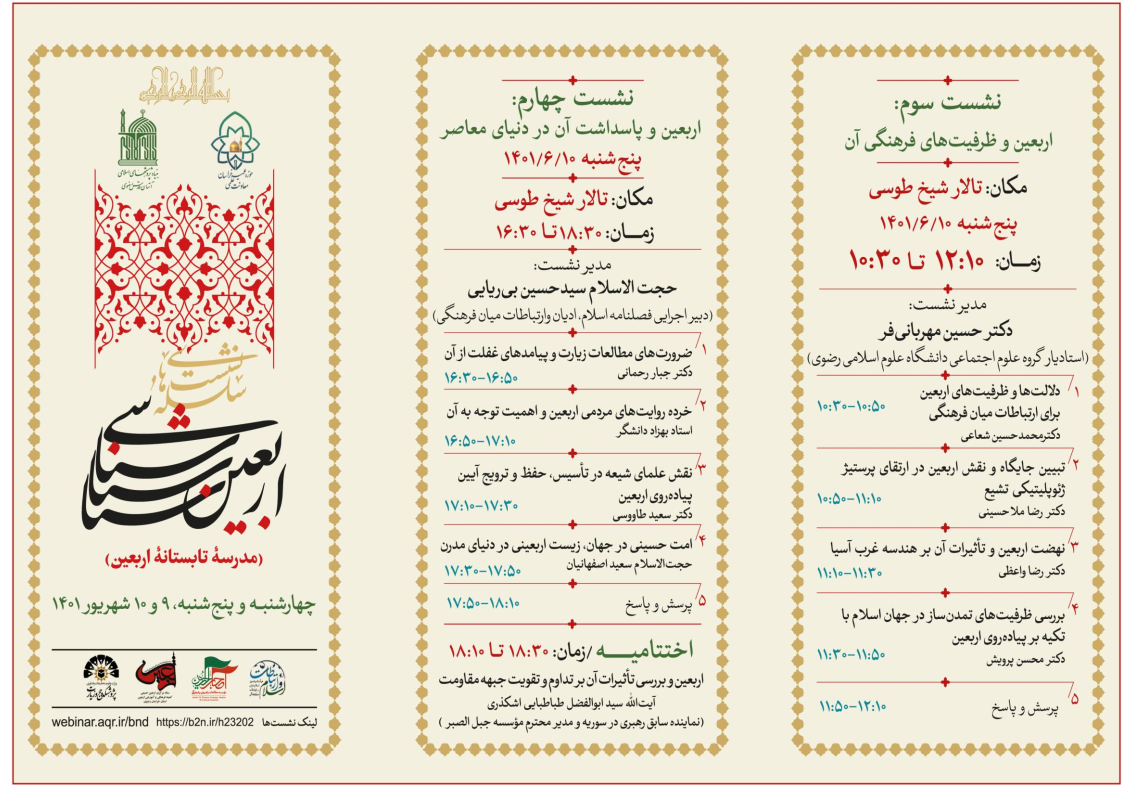 نشست سوم:
اربعین و ظرفیت‌های فرهنگی آن
مکان: تالار شیخ طوسی
پنج‌شنبه ۱۴۰۱/۶/۱۰
زمــان: ۱۲:۱۰ تا ۱۰:۳۰
مدیر نشست:
دکتر حسین مهربانی‌فر
(استادیار گروه علوم اجتماعی دانشگاه علوم اسلامی رضوی)
۱/ دلالت‌ها و ظرفیت‌های اربعین
برای ارتباطات میان فرهنگی
دکترمحمدحسین شعاعی
۱۰:۳۰-۱۰:۵۰
۲/ تبیین جایگاه و نقش اربعین در ارتقای پرستیژ
ژئوپلیتیکی تشیع
دکتر رضا ملاحسینی
۱۰:۵۰-۱۱:۱۰
۳/ نهضت اربعین و تأثیرات آن بر هندسه غرب آسیا
دکتر رضا واعظی
۱۱:۱۰-۱۱:۳۰
۴/ بررسی ظرفیت‌های تمدن‌ساز در جهان اسلام با
تکیه بر پیاده‌روی اربعین
دکتر محسن پرویش
۱۱:۳۰-۱۱:۵۰
۵/ پرسش و پاسخ
۱۱:۵۰-۱۲:۱۰
نشست چهارم:
اربعین و پاسداشت آن در دنیای معاصر
پنج‌شنبه ۱۴۰۱/۶/۱۰
مکان: تالار شیخ طوسی
زمــان: ۱۸:۳۰ تـا ۱۶:۳۰
مدیر نشست:
حجت الاسلام سیدحسین بی‌ریایی
(دبیر اجرایی فصلنامه اسلام، ادیان وارتباطات میان فرهنگی)
۱/ ضرورت‌های مطالعات زیارت و پیامدهای غفلت از آن
دکتر جبار رحمانی
۱۶:۳۰-۱۶:۵۰
۲/ خرده روایت‌های مردمی اربعین و اهمیت توجه به آن
استاد بهزاد دانشگر
۱۶:۵۰-۱۷:۱۰
۳/ نقش علمای شیعه در تأسیس، حفظ و ترویج آیین
پیاده‌روی اربعین
دکتر سعید طاووسی
۱۷:۱۰-۱۷:۳۰
۴/ امت حسینی در جهان، زیست اربعینی در دنیای مدرن
حجت‌الاسلام سعید اصفهانیان
۱۷:۳۰-۱۷:۵۰
۵/ پرسش و پاسخ
۱۷:۵۰-۱۸:۱۰
اختتامیـــه /زمان: ۱۸:۳۰ تـا ۱۸:۱۰
اربعین و بررسی تأثیرات آن بر تداوم و تقویت جبهه مقاومت
آیت‌الله سید ابوالفضل طباطبایی اشکذری
(نماینده سابق رهبری در سوریه و مدیر محترم مؤسسه جبل الصبر )
حوزه علمیه خراسان
معاونت علمی
بنیاد پژوهش‌های اسلامی
آستان قدس رضوی
سلسله نشست‌های
اربعین‌شناسی
(مدرسهٔ تابستانهٔ اربعین)
چهارشنبـه و پنج‌شنبه، ۹ و ۱۰ شهریور ۱۴۰۱
لینک نشست‌ها https://b2n.ir/h23202 webinar.aqr.ir/bnd